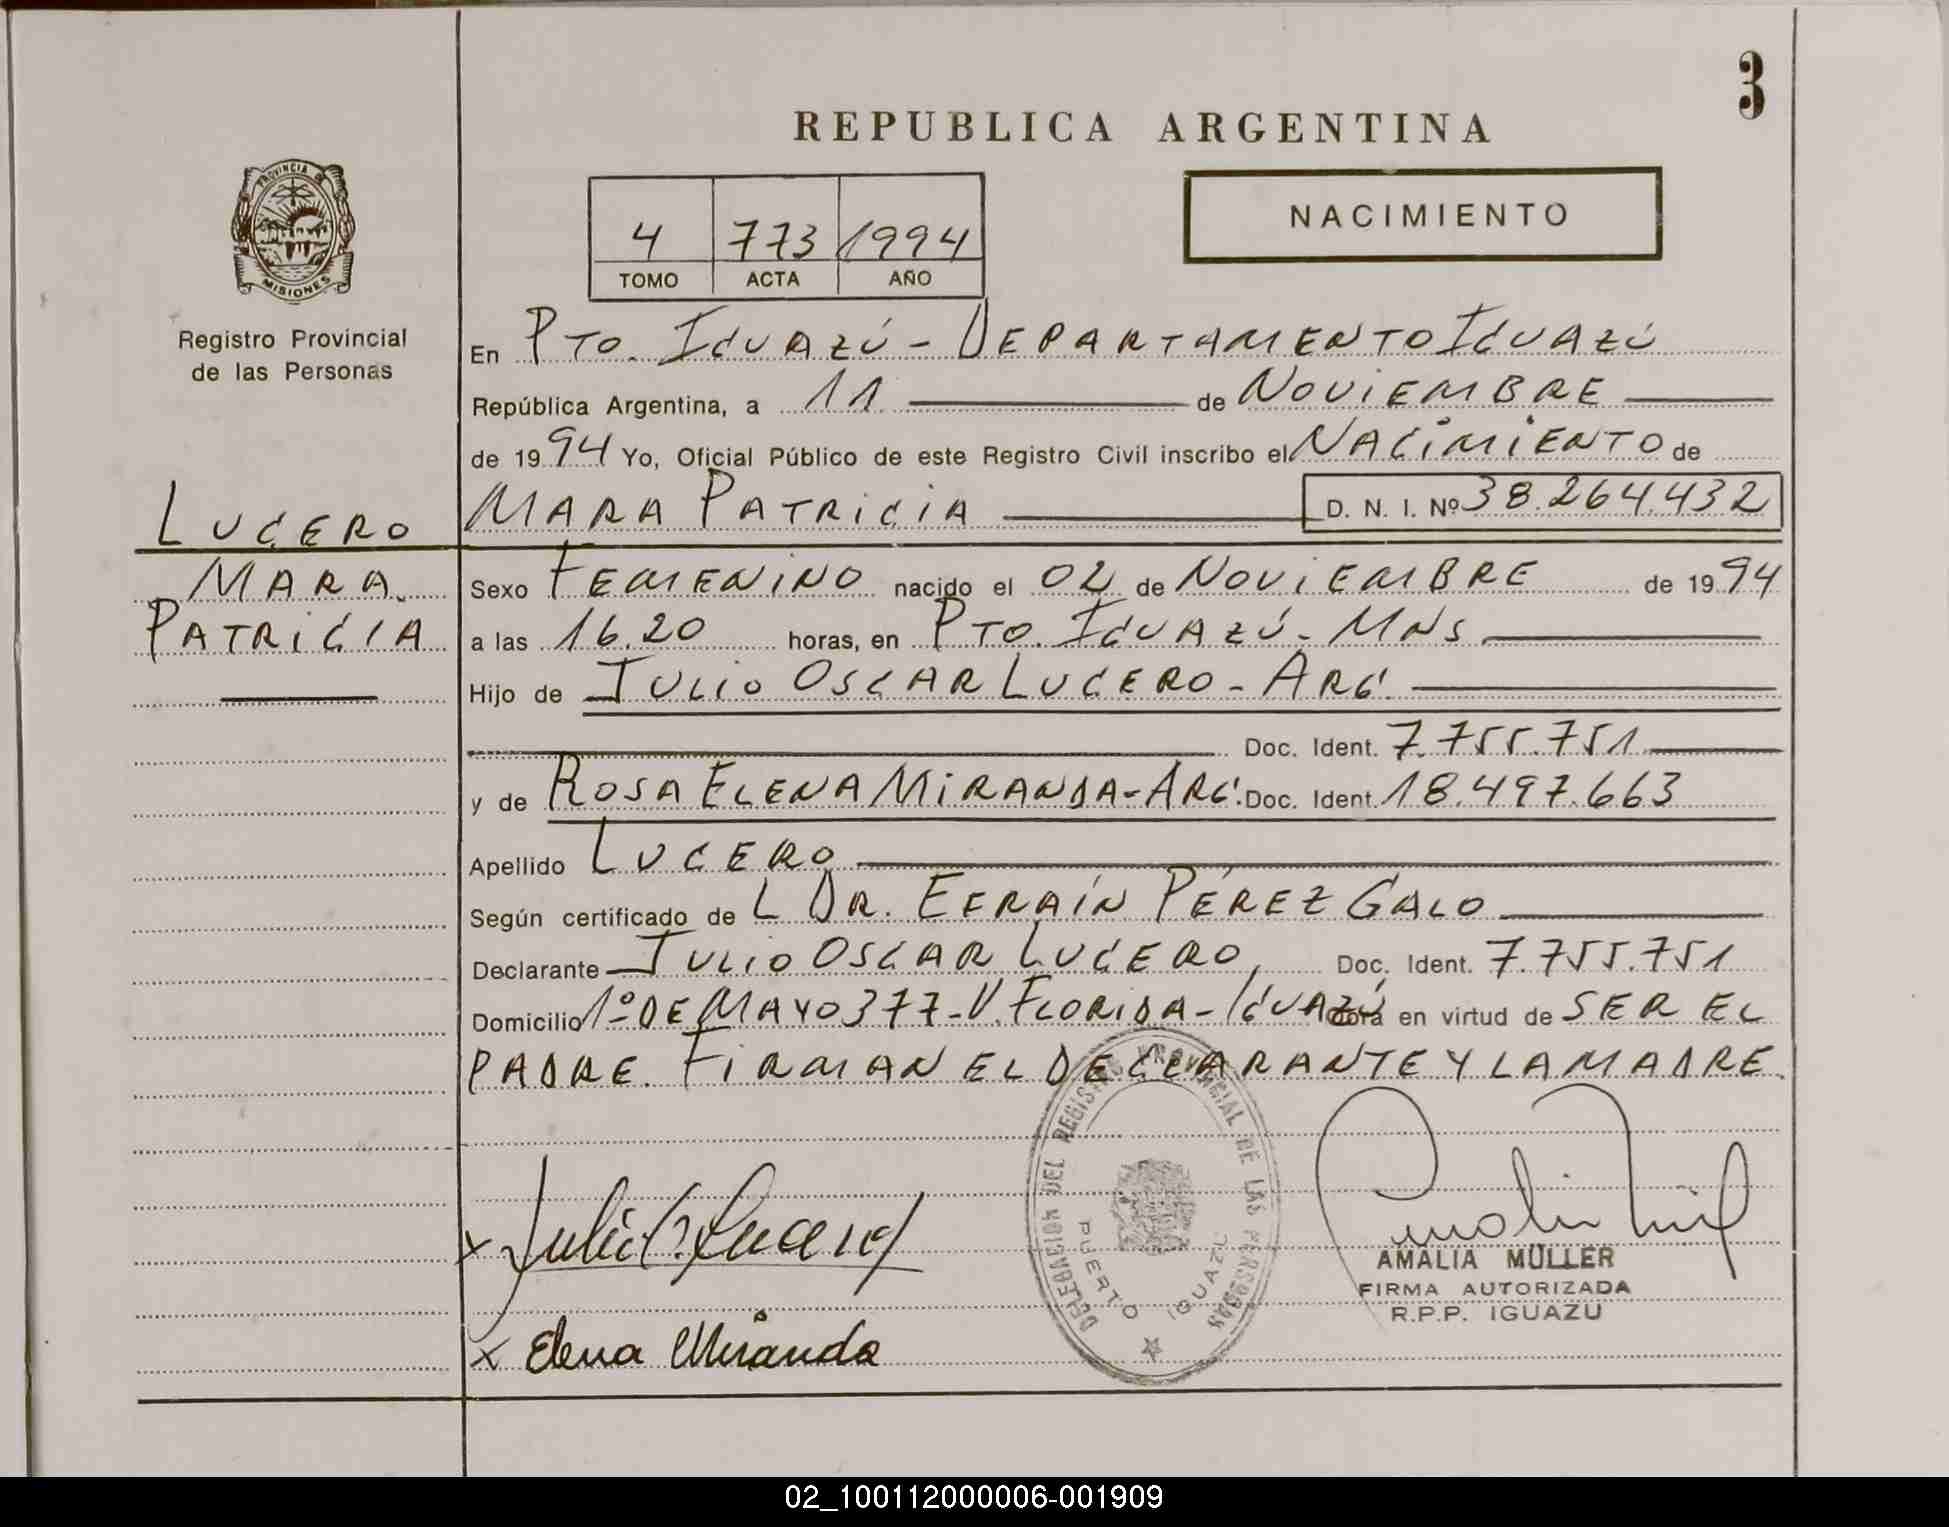 3
REPUBLICA ARGENTINA
PROVINCIA DE MISIONES
Registro Provincial
de las Personas
4 773 1994
TOMO ACTA AÑO
NACIMIENTO
En PTO. IGUAZÚ - DEPARTAMENTO IGUAZÚ
República Argentina, a 11 de NOVIEMBRE
de 1994 Yo, Oficial Público de este Registro Civil inscribo el NACIMIENTO de
LUCERO
MARA PATRICIA D. N. I. Nº 38.264.432
MARA
PATRICIA
Sexo FEMENINO nacido el 02 de NOVIEMBRE de 1994
a las 16.20 horas, en PTO. IGUAZÚ - MNS
Hijo de JULIO OSCAR LUCERO - ARG.
Doc. Ident. 7.755.751
y de ROSA ELENA MIRANDA - ARG. Doc. Ident 18.497.663
Apellido LUCERO
Según certificado de L DR. EFRAÍN PÉREZ GALO
Declarante JULIO OSCAR LUCERO, Doc. Ident. 7.755.751
Domicilio 1º DE MAYO 377 - V. FLORIDA - IGUAZÚ Obra en virtud de SER EL
PADRE. FIRMAN EL DECLARANTE Y LA MADRE.
DELEGACION DEL REGISTRO PROVINCIAL DE LAS PERSONAS
PUERTO IGUAZU
x Julio O. Lucero
x Elena Miranda
AMALIA MÜLLER
FIRMA AUTORIZADA
R.P.P. IGUAZU
02_100112000006-001909